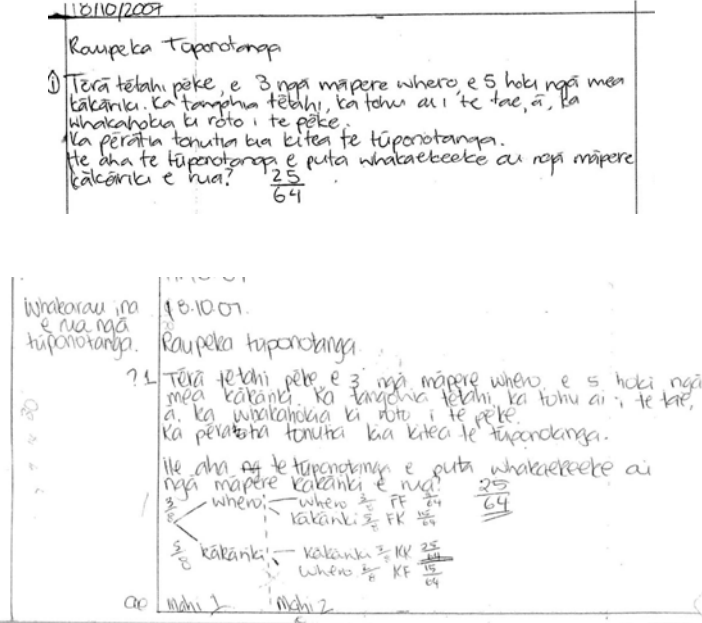 18/10/2007
Raupeka Tūponotanga
① Tērā tētahi pēke, e 3 ngā māpere whero, e 5 hoki ngā mea
kākāriki. Ka tangohia tētahi, ka tohu ai i te tae, ā, ka
whakahokia ki roto i te pēke.
Ka pērātia tonutia kia kitea te tūponotanga.
He aha te tūponotanga e puta whakaekeeke ai ngā māpere
kākāriki e rua? 25/64
whakarau ina
e rua ngā
tūponotanga.
18.10.07.
Raupeka tūponotanga
?1 Tērā tētahi pēke e 3 ngā māpere whero, e 5 hoki ngā
mea kākāriki. Ka tangohia tētahi, ka tohu ai i te tae,
ā, ka whakahokia ki roto i te pēke.
Ka pēratia tonutia kia kitea te tūponotanga.
He aha te tūponotanga e puta whakaekeeke ai
ngā māpere kākāriki e rua? 25/64
3/8 whero whero 3/8 FF 9/64
kākāriki 5/8 FK 15/64
5/8 kākāriki kākāriki 5/8 KK 25/64
whero 3/8 KF 15/64
ao mahi 1 mahi 2